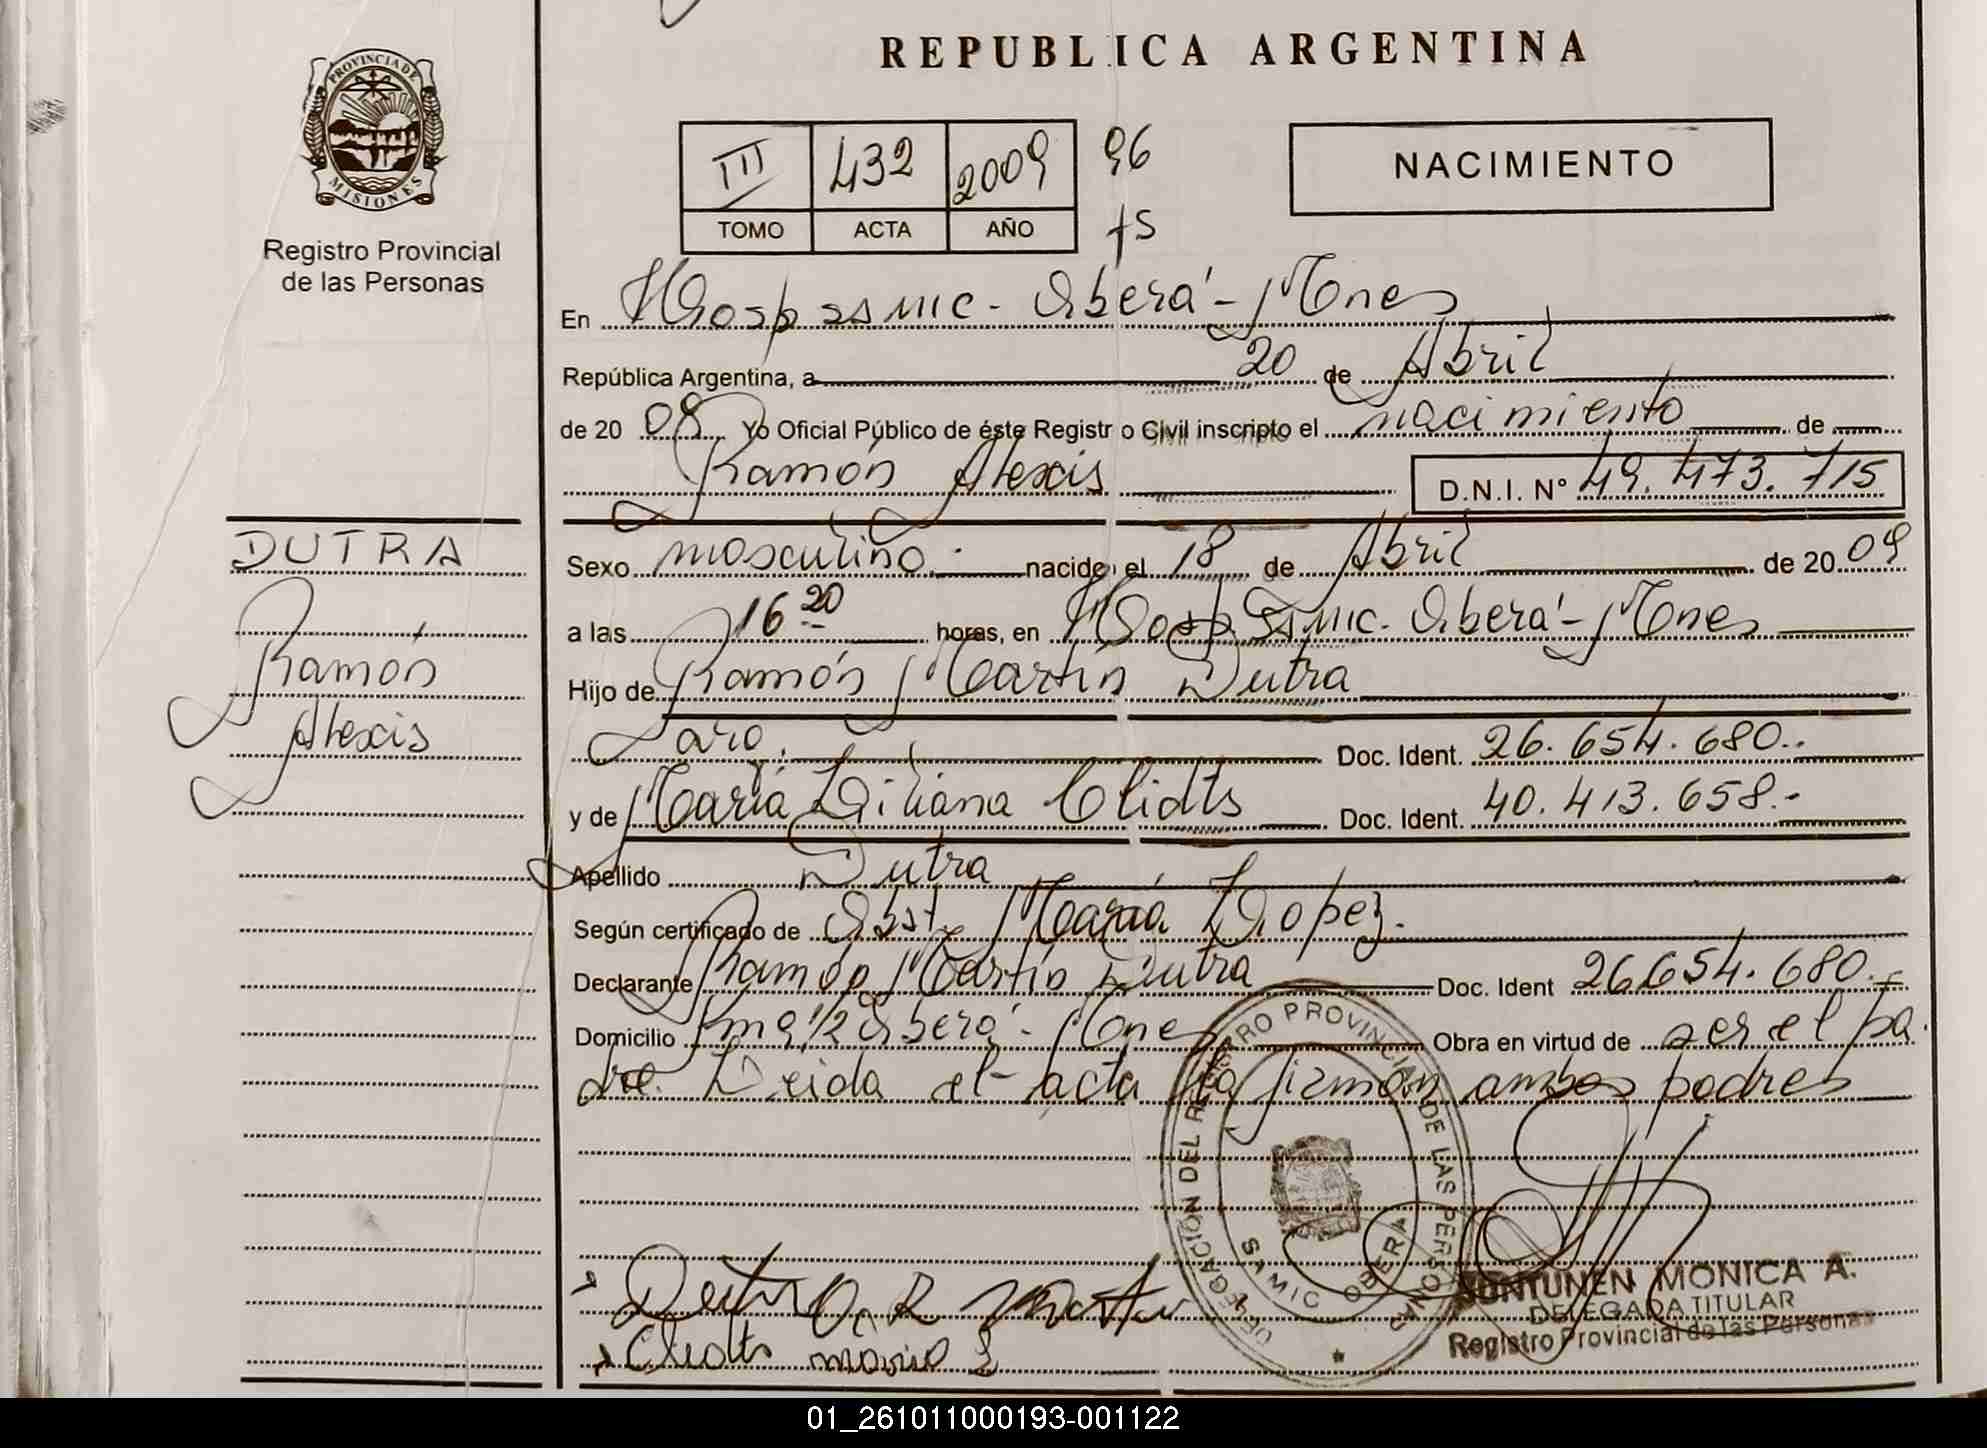 REPUBLICA ARGENTINA
PROVINCIA DE
MISIONES
Registro Provincial
de las Personas
III 432 2009 96
TOMO ACTA AÑO fs
NACIMIENTO
En Hosp SAMIC - Oberá - Mnes
República Argentina, a 20 de Abril
de 20 09 Yo Oficial Público de éste Registro Civil inscripto el nacimiento de
Ramón Alexis D.N.I. Nº 49.473.715
DUTRA
Ramón
Alexis
Sexo masculino.- nacido el 18 de Abril de 20 09
a las 16 20 horas, en Hosp SAMIC. Oberá - Mnes
Hijo de Ramón Martín Dutra
Doc. Ident. 26.654.680.-
y de María Liliana Clidts Doc. Ident. 40.413.658.-
Apellido Dutra
Según certificado de Obst. María Lopez.
Declarante Ramón Martín Dutra Doc. Ident 26654.680.-
Domicilio Oberá - Mnes Obra en virtud de ser el pa
dre. Leida el acta la firman ambos padres
DELEGACIÓN DEL REGISTRO PROVINCIAL DE LAS PERSONAS
SAMIC OBERA
MONICA A.
DELEGADA TITULAR
Registro Provincial de las Personas
01_261011000193-001122